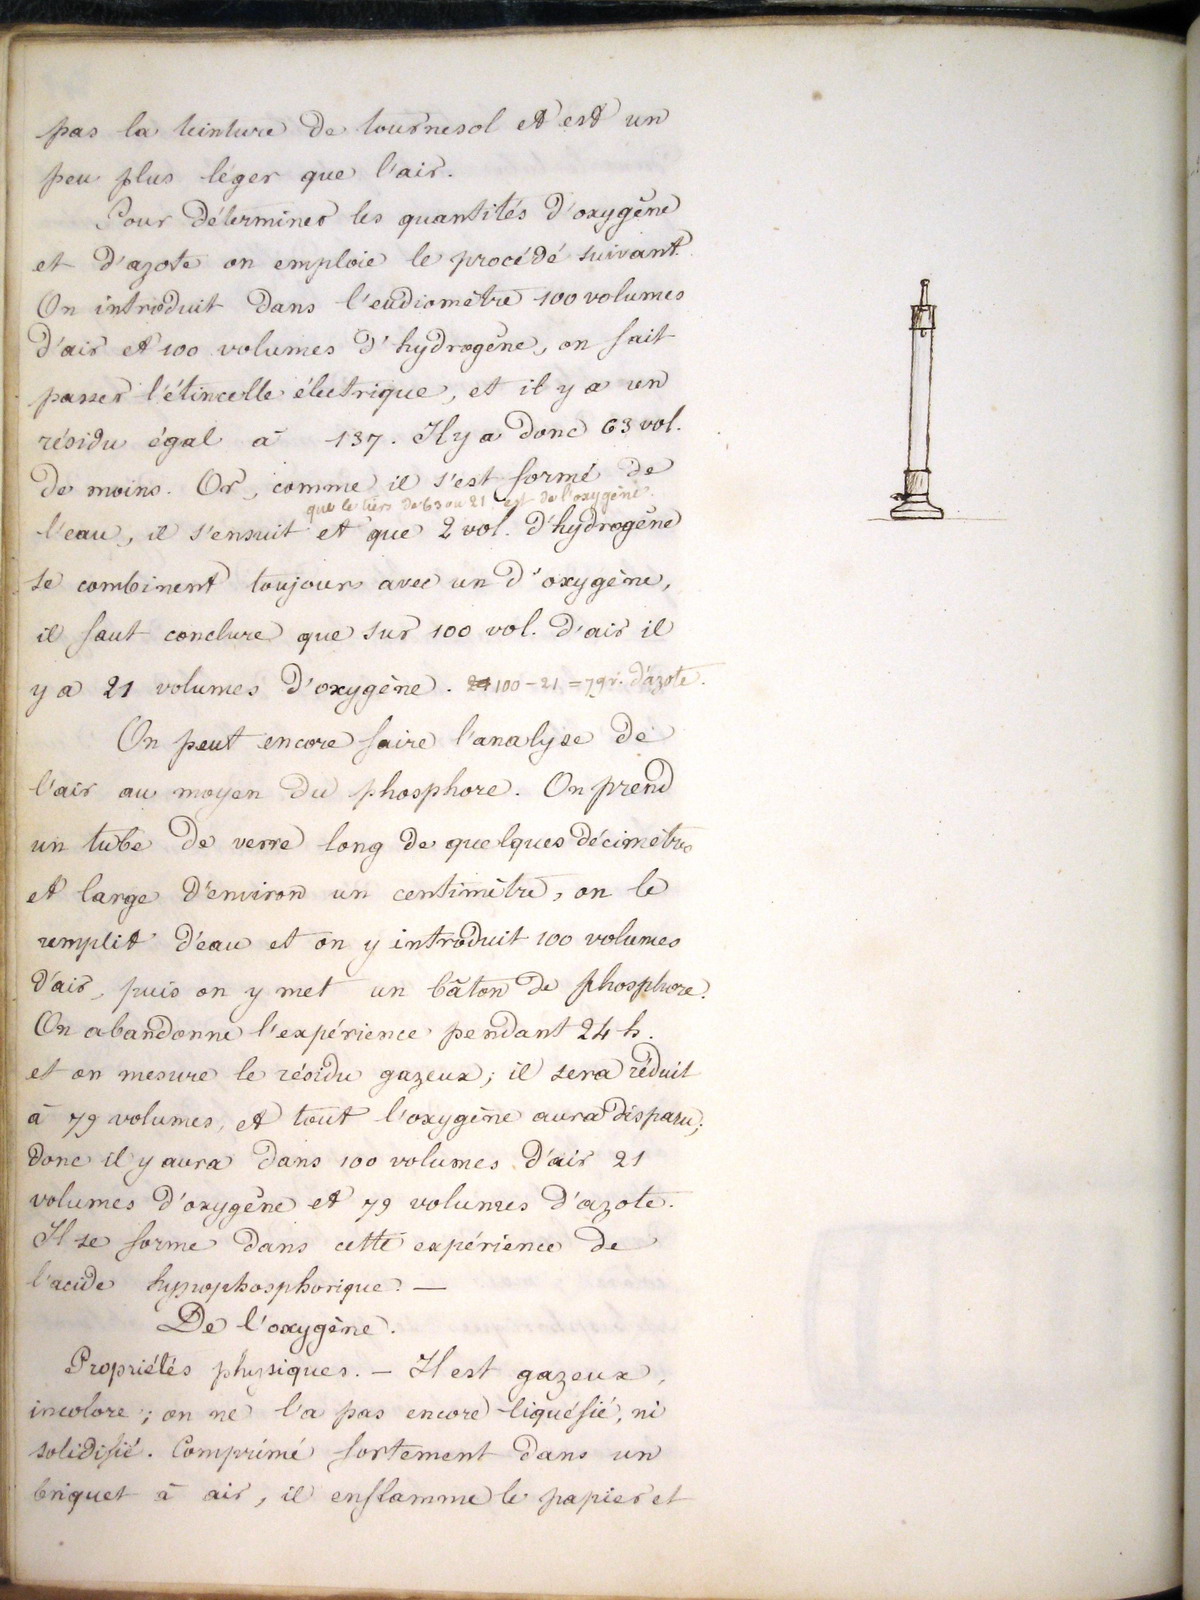 pas la teinture de tournesol et est un
peu plus léger que l'air.
Pour déterminer les quantités d'oxygène
et d'azote on emploie le procédé suivant.
On introduit dans l'eudiomètre 100 volumes
d'air et 100 volumes d'hydrogène, on fait
passer l'étincelle électrique, et il y a un
résidu égal à 137. Il y a donc 63 vol.
de moins. Or, comme il s'est formé de
que le tiers de 63 ou 21 est de l'oxygène.
l'eau, il s'ensuit et que 2 vol. d'hydrogène
se combinent toujours avec un d'oxygène,
il faut conclure que sur 100 vol. d'air il
y a 21 volumes d'oxygène. 100 - 21 = 79 v. d'azote.
On peut encore faire l'analyse de
l'air au moyen du phosphore. On prend
un tube de verre long de quelques décimètres
et large d'environ un centimètre, on le
remplit d'eau et on y introduit 100 volumes
d'air, puis on y met un bâton de phosphore.
On abandonne l'expérience pendant 24 h.
et on mesure le résidu gazeux; il sera réduit
à 79 volumes, et tout l'oxygène aura disparu;
donc il y aura dans 100 volumes d'air 21
volumes d'oxygène et 79 volumes d'azote.
Il se forme dans cette expérience de
l'acide hypophosphorique. —
De l'oxygène.
Propriétés physiques. — Il est gazeux,
incolore; on ne l'a pas encore liquéfié, ni
solidifié. Comprimé fortement dans un
briquet à air, il enflamme le papier et